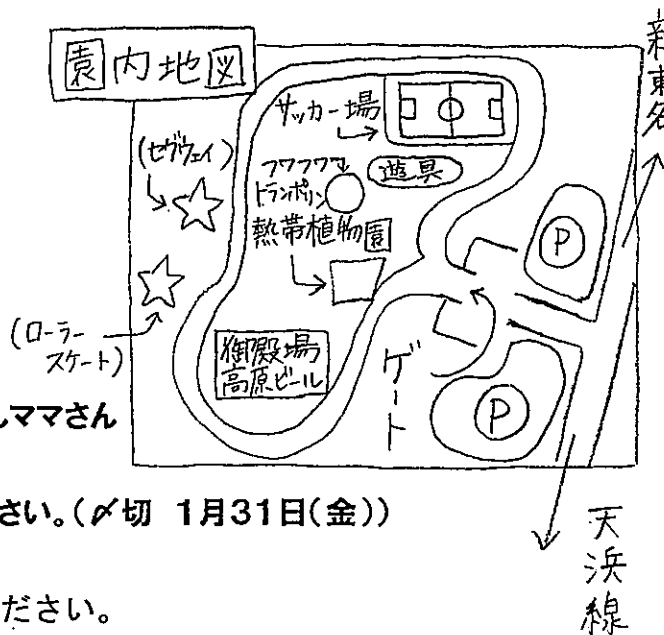 園内地図
新東名
サッカー場
(セグウェイ)
フワフワ
トランポリン
遊具
熱帯植物園
P
(ローラー
スケート)
御殿場
高原ビール
ゲート
P
ママさん
さい。(〆切 1月31日(金))
天浜線
ださい。